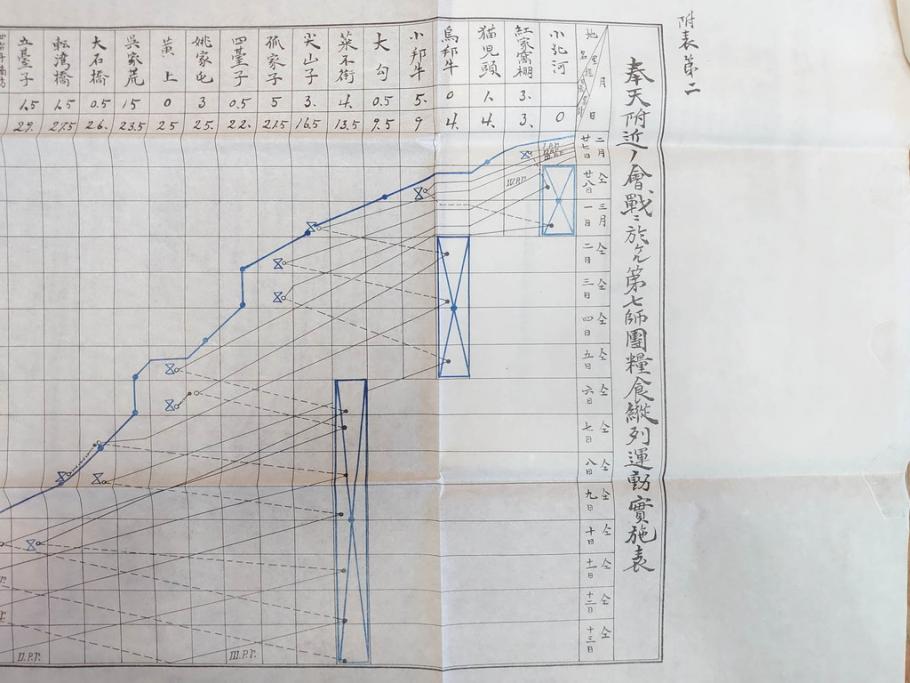 附表第二
奉天附近ノ會戰ニ於ケル第七師團糧食縱列運動實施表
月
日
地名
小北河
0
紅家窩棚
3.
3.
猫児頭
1.
4.
烏邦牛
0
4.
小邦牛
5.
9
大勾
0.5
9.5
菜不街
4.
13.5
尖山子
3.
16.5
孤家子
5
21.5
四臺子
0.5
22.
姚家屯
3
25.
黄上
0
25
呉家荒
15
23.5
大石橋
0.5
26.
転湾橋
1.5
27.5
五臺子
1.5
29.
二月廿七日
仝廿八日
三月一日
仝二日
仝三日
仝四日
仝五日
仝六日
仝七日
仝八日
仝九日
仝十日
仝十一日
仝十二日
仝十三日
II.P.T.
III.P.T.